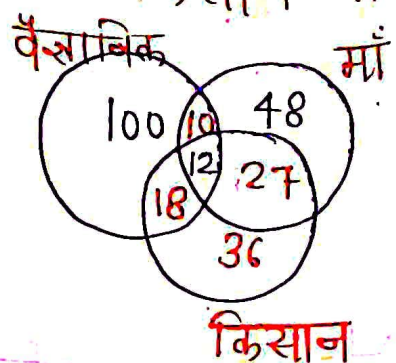 वैज्ञानिक
माँ
100 10 48
12 27
18
36
किसान